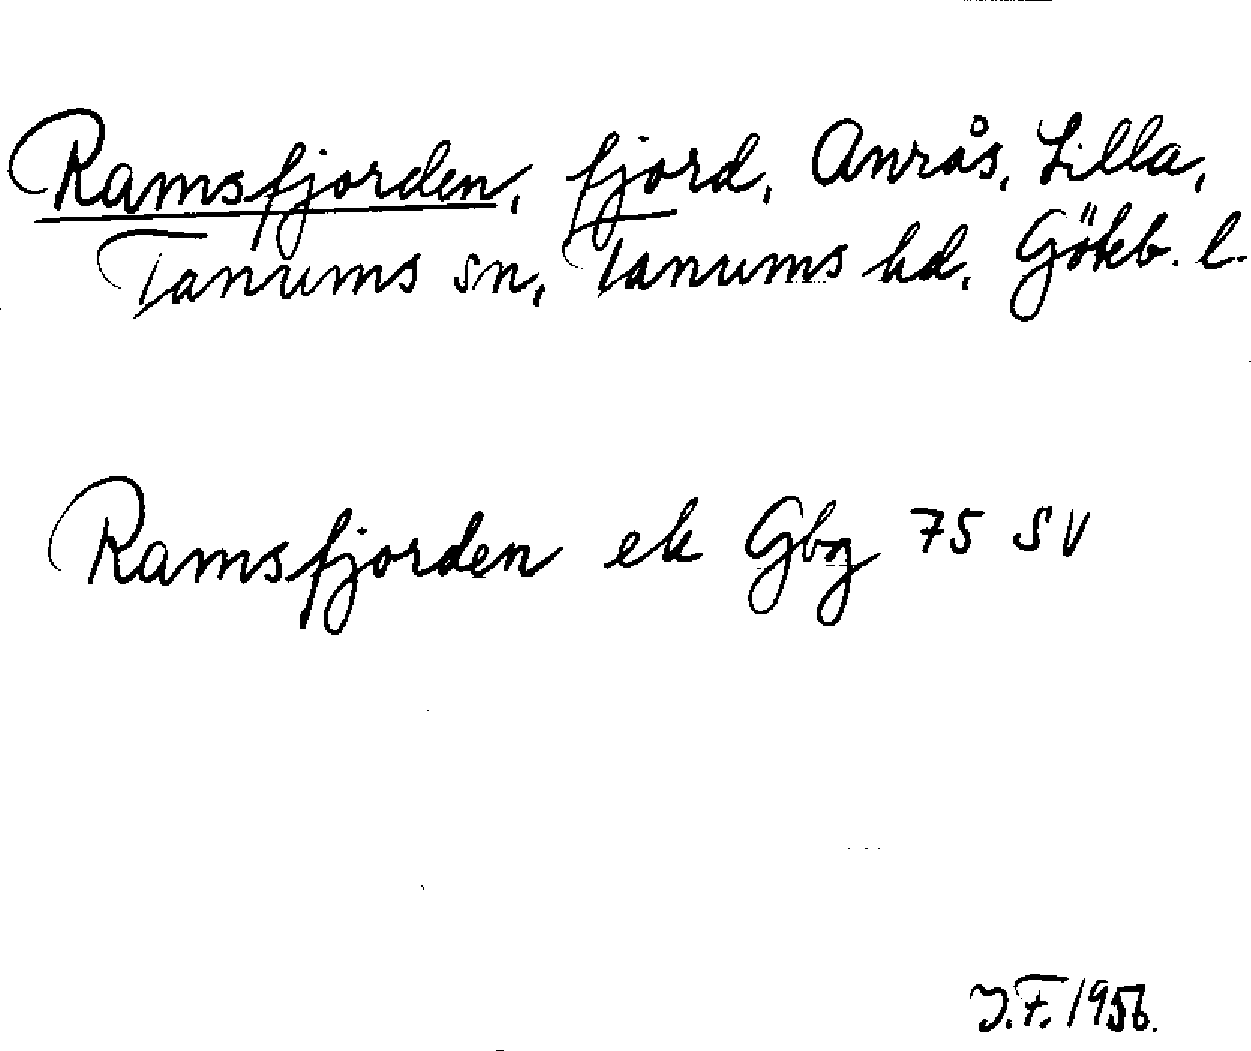 Ramsfjorden, fjord, Anrås, Lilla,
Tanums sn, Tanums hd, Göteb. l.
Ramsfjorden ek Gbg 75 SV
J.F. 1956.